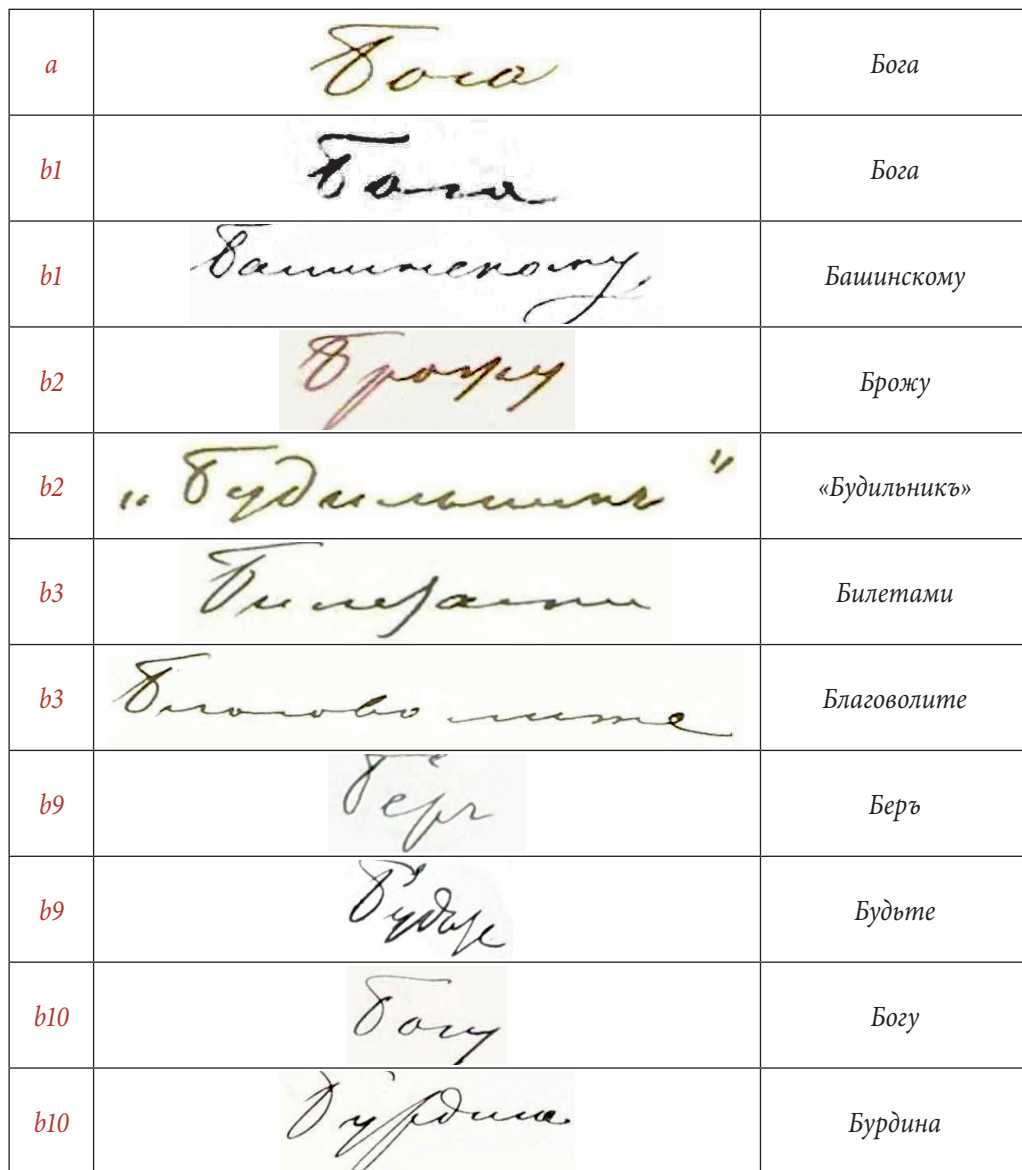 a Бога Бога
b1 Бога Бога
b1 Башинскому, Башинскому
b2 Брожу Брожу
b2 „Будильникъ" «Будильникъ»
b3 Билетами Билетами
b3 Благоволите Благоволите
b9 Беръ Беръ
b9 Будьте Будьте
b10 Богу Богу
b10 Бурдина Бурдина